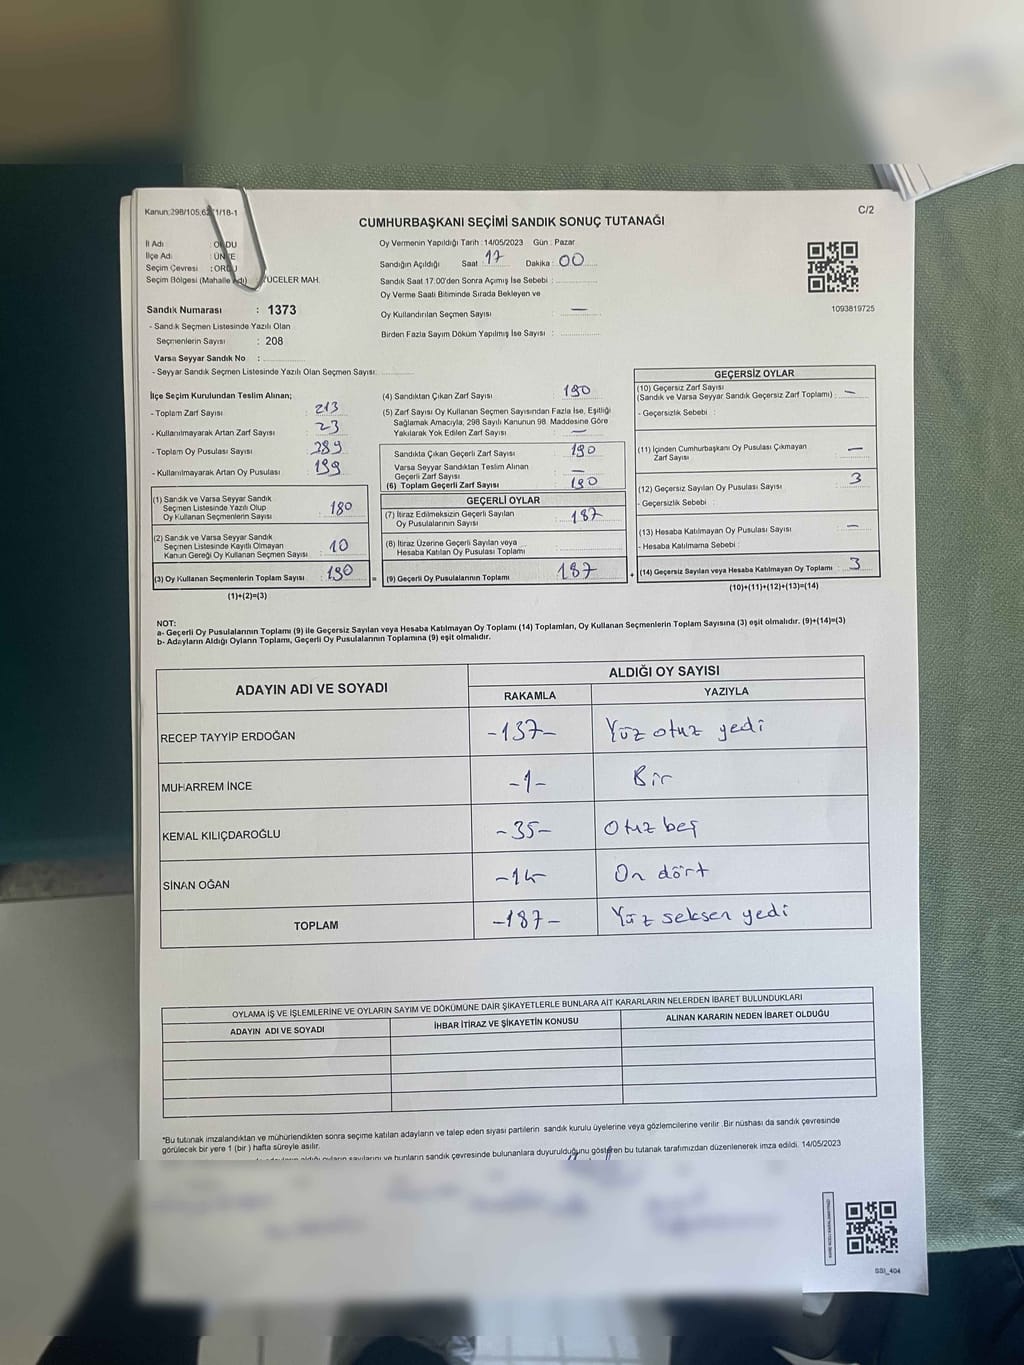 Kanun;298/105,6271/18-1
C/2
CUMHURBAŞKANI SEÇİMİ SANDIK SONUÇ TUTANAĞI
İl Adı : ORDU
İlçe Adı : ÜNYE
Seçim Çevresi : ORDU
Seçim Bölgesi (Mahalle Adı) : YÜCELER MAH.
Oy Vermenin Yapıldığı Tarih : 14/05/2023 Gün : Pazar
Sandığın Açıldığı Saat 17 Dakika : 00
Sandık Saat 17.00'den Sonra Açımış İse Sebebi :
Oy Verme Saati Bitiminde Sırada Bekleyen ve
Oy Kullandırılan Seçmen Sayısı : —
Birden Fazla Sayım Döküm Yapılmış İse Sayısı :
1093819725
Sandık Numarası : 1373
- Sandık Seçmen Listesinde Yazılı Olan
Seçmenlerin Sayısı : 208
Varsa Seyyar Sandık No :
- Seyyar Sandık Seçmen Listesinde Yazılı Olan Seçmen Sayısı:
İlçe Seçim Kurulundan Teslim Alınan;
- Toplam Zarf Sayısı : 213
- Kullanılmayarak Artan Zarf Sayısı : 23
- Toplam Oy Pusulası Sayısı : 389
- Kullanılmayarak Artan Oy Pusulası : 199
(1) Sandık ve Varsa Seyyar Sandık
Seçmen Listesinde Yazılı Olup
Oy Kullanan Seçmenlerin Sayısı : 180
(2) Sandık ve Varsa Seyyar Sandık
Seçmen Listesinde Kayıtlı Olmayan
Kanun Gereği Oy Kullanan Seçmen Sayısı : 10
(3) Oy Kullanan Seçmenlerin Toplam Sayısı : 190
(1)+(2)=(3)
(4) Sandıktan Çıkan Zarf Sayısı : 190
(5) Zarf Sayısı Oy Kullanan Seçmen Sayısından Fazla İse, Eşitliği
Sağlamak Amacıyla; 298 Sayılı Kanunun 98. Maddesine Göre
Yakılarak Yok Edilen Zarf Sayısı : —
Sandıkta Çıkan Geçerli Zarf Sayısı : 190
Varsa Seyyar Sandıktan Teslim Alınan
Geçerli Zarf Sayısı : —
(6) Toplam Geçerli Zarf Sayısı : 190
GEÇERLİ OYLAR
(7) İtiraz Edilmeksizin Geçerli Sayılan
Oy Pusulalarının Sayısı : 187
(8) İtiraz Üzerine Geçerli Sayılan veya
Hesaba Katılan Oy Pusulası Toplamı :
(9) Geçerli Oy Pusulalarının Toplamı : 187
GEÇERSİZ OYLAR
(10) Geçersiz Zarf Sayısı
(Sandık ve Varsa Seyyar Sandık Geçersiz Zarf Toplamı) : —
- Geçersizlik Sebebi :
(11) İçinden Cumhurbaşkanı Oy Pusulası Çıkmayan
Zarf Sayısı : —
(12) Geçersiz Sayılan Oy Pusulası Sayısı : 3
- Geçersizlik Sebebi :
(13) Hesaba Katılmayan Oy Pusulası Sayısı : —
- Hesaba Katılmama Sebebi :
(14) Geçersiz Sayılan veya Hesaba Katılmayan Oy Toplamı : 3
(10)+(11)+(12)+(13)=(14)
NOT:
a- Geçerli Oy Pusulalarının Toplamı (9) ile Geçersiz Sayılan veya Hesaba Katılmayan Oy Toplamı (14) Toplamları, Oy Kullanan Seçmenlerin Toplam Sayısına (3) eşit olmalıdır. (9)+(14)=(3)
b- Adayların Aldığı Oyların Toplamı, Geçerli Oy Pusulalarının Toplamına (9) eşit olmalıdır.
ADAYIN ADI VE SOYADI
ALDIĞI OY SAYISI
RAKAMLA YAZIYLA
RECEP TAYYİP ERDOĞAN -137- Yüz otuz yedi
MUHARREM İNCE -1- Bir
KEMAL KILIÇDAROĞLU -35- Otuz beş
SİNAN OĞAN -14 On dört
TOPLAM -187- Yüz seksen yedi
OYLAMA İŞ VE İŞLEMLERİNE VE OYLARIN SAYIM VE DÖKÜMÜNE DAİR ŞİKAYETLERLE BUNLARA AİT KARARLARIN NELERDEN İBARET BULUNDUKLARI
ADAYIN ADI VE SOYADI İHBAR İTİRAZ VE ŞİKAYETİN KONUSU ALINAN KARARIN NEDEN İBARET OLDUĞU
*Bu tutanak imzalandıktan ve mühürlendikten sonra seçime katılan adayların ve talep eden siyasi partilerin sandık kurulu üyelerine veya gözlemcilerine verilir .Bir nüshası da sandık çevresinde
görülecek bir yere 1 (bir ) hafta süreyle asılır.
aldığı oyların sayılarını ve bunların sandık çevresinde bulunanlara duyurulduğunu gösteren bu tutanak tarafımızdan düzenlenerek imza edildi. 14/05/2023
SSI_404